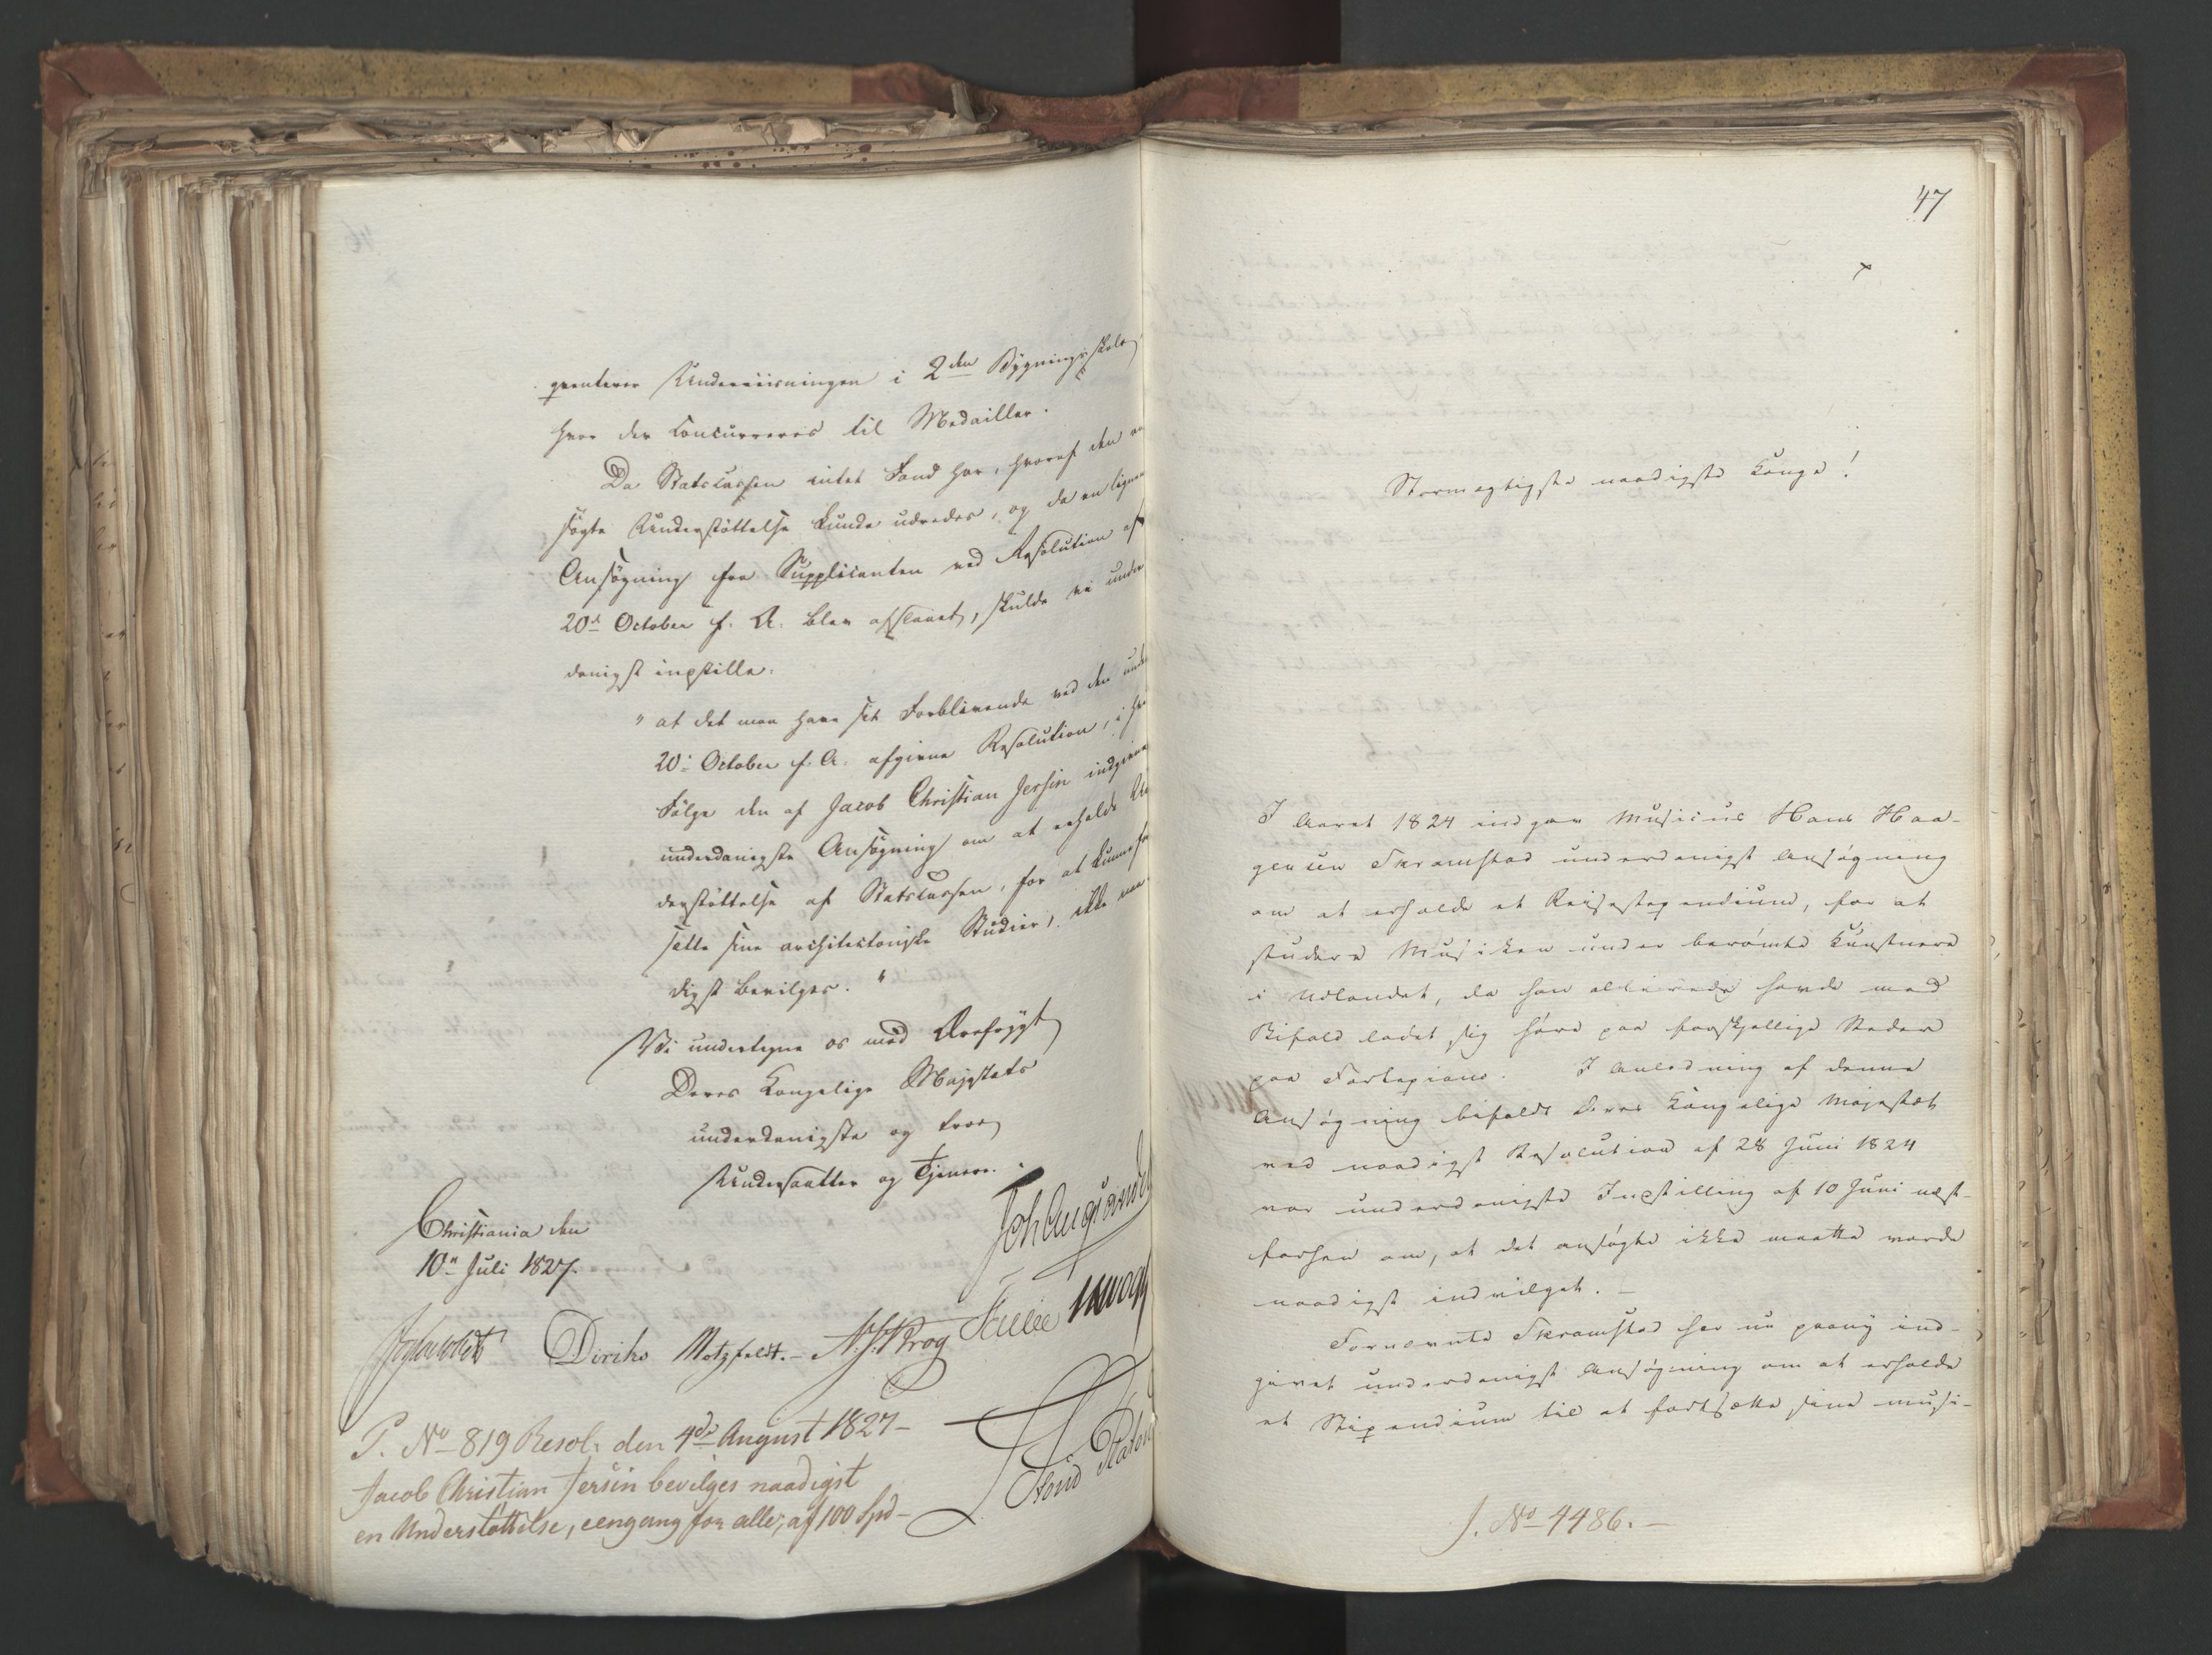 qventerer Underviisningen i 2den Bygningsskole
hvor der Concurreres til Medailler.
Da Statscassen intet Fond har, hvoraf den an
søgte Understøttelse kunde udredes, og da en lignen
Ansøgning fra Supplicanten ved Resolution af
20d October f. A. blev afslaaet, skulde vi under
danigst indstille:
" at det maa have sit Forblivende ved den under
20d October f. A. afgivne Resolution, i hvis
Følge den af Jacob Christian Jersin indgivne
underdanigste Ansøgning om at erholde Un
derstøttelse af Statscassen, for at kunne fort
sætte sine architectoniske Studier, ikke naa
digst bevilges. "
Vi undertegne os med Ærefrygt
Deres Kongelige Majestæts
underdanigste og troe
Undersaatter og Tjenere.
Christiania den
10de Juli 1827.
Diriks Motzfeldt. N. J. Krog
P. No 819 Resol. den 4de August 1827 –
Jacob Christian Jersin bevilges naadigst
en Understøttelse, eengang for alle, af 100 Spd –
47
Stormægtigste naadigste Konge!
I Aaret 1824 indgav Musicus Hans Haa-
gensen Skramstad underdanigst Ansøgning
om at erholde et Reisestipendium, for at
studere Musiken under berømte Kunstnere
i Udlandet, da han allerede havde med
Bifald ladet sig høre paa forskjellige Steder
paa Fortepiano. I Anledning af denne
Ansøgning bifaldt Deres Kongelige Majestæt
ved naadigst Resolution af 28 Juni 1824
vor underdanigste Indstilling af 10 Juni næst-
forhen om, at det ansøgte ikke maatte vorde
naadigst indvilget. –
Fornævnte Skramstad har nu paany ind-
givet underdanigst Ansøgning om at erholde
et Stipendium til at fortsætte sine musi-
J. No 4486. –